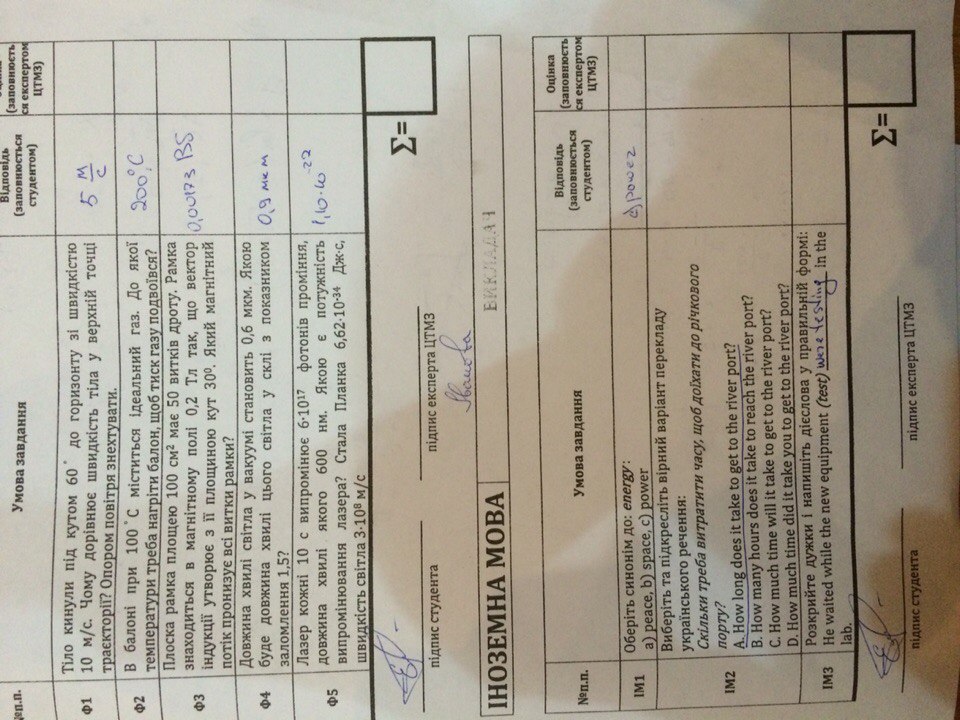 №п.п.
Умова завдання
Відповідь
(заповнюється
студентом)
(заповнюєть
ся експертом
ЦТМЗ)
Ф1
Тіло кинули під кутом 60˚ до горизонту зі швидкістю
10 м/с. Чому дорівнює швидкість тіла у верхній точці
траєкторії? Опором повітря знехтувати.
5 м/с
Ф2
В балоні при 100˚С міститься ідеальний газ. До якої
температури треба нагріти балон, щоб тиск газу подвоївся?
200°C
Ф3
Плоска рамка площею 100 см² має 50 витків дроту. Рамка
знаходиться в магнітному полі 0,2 Тл так, що вектор
індукції утворює з її площиною кут 30⁰. Який магнітний
потік пронизує всі витки рамки?
0,00173 Вб
Ф4
Довжина хвилі світла у вакуумі становить 0,6 мкм. Якою
буде довжина хвилі цього світла у склі з показником
заломлення 1,5?
0,9 мкм
Ф5
Лазер кожні 10 с випромінює 6·10¹⁷ фотонів проміння,
довжина хвилі якого 600 нм. Якою є потужність
випромінювання лазера? Стала Планка 6,62·10⁻³⁴ Дж·с,
швидкість світла 3·10⁸ м/с
1,10·10⁻²²
Σ=
підпис студента
підпис експерта ЦТМЗ
Іванова
ІНОЗЕМНА МОВА
ВИКЛАДАЧ
№п.п.
Умова завдання
Відповідь
(заповнюється
студентом)
Оцінка
(заповнюєть
ся експертом
ЦТМЗ)
ІМ1
Оберіть синонім до: energy:
a) peace, b) space, c) power
c) power
ІМ2
Виберіть та підкресліть вірний варіант перекладу
українського речення:
Скільки треба витратити часу, щоб доїхати до річкового
порту?
A. How long does it take to get to the river port?
B. How many hours does it take to reach the river port?
C. How much time will it take to get to the river port?
D. How much time did it take you to get to the river port?
ІМ3
Розкрийте дужки і напишіть дієслова у правильній формі:
He waited while the new equipment (test) were testing in the
lab.
Σ=
підпис студента
підпис експерта ЦТМЗ